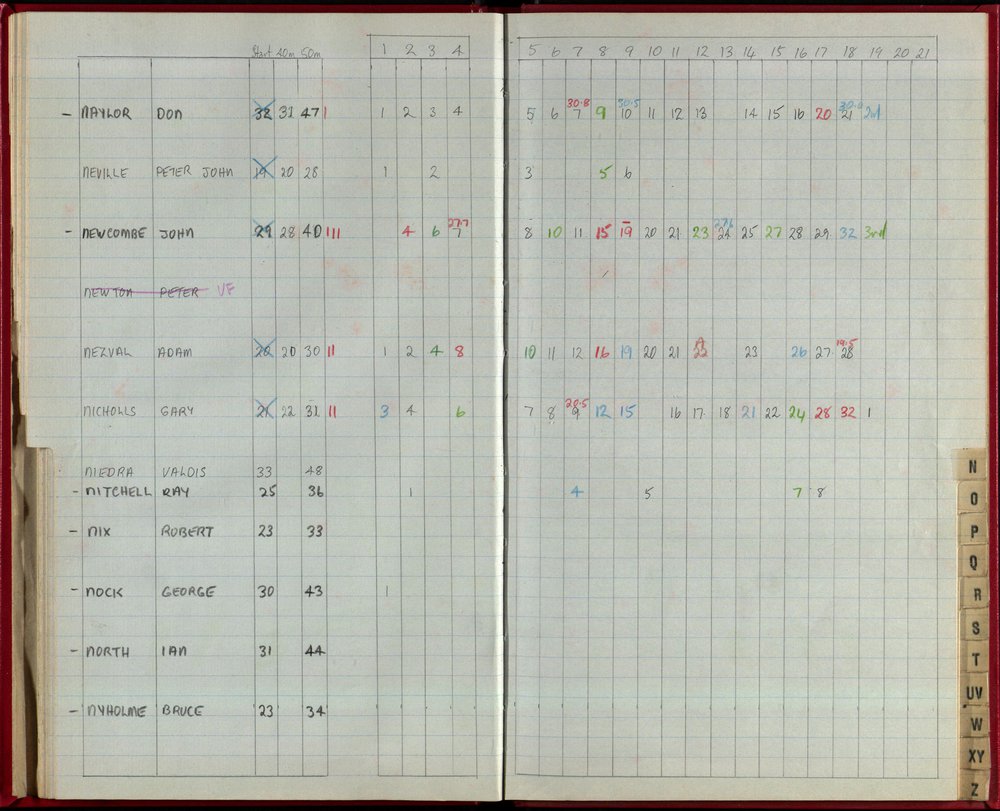 Start 40m 50m 1 2 3 4 5 6 7 8 9 10 11 12 13 14 15 16 17 18 19 20 21
30.8 30.5
- NAYLOR DON 32 31 47 | 1 2 3 4 5 6 7 9 10 11 12 13 14 15 16 20 21 2nd
NEVILLE PETER JOHN 19 20 28 1 2 3 5 6
27.7 27.6
- NEWCOMBE JOHN 29 28 40 ||| 4 6 7 8 10 11 15 19 20 21 23 24 25 27 28 29 32 3rd
NEWTON PETER VF
19.5
NEZVAL ADAM 20 20 30 || 1 2 4 8 10 11 12 16 19 20 21 22 23 26 27 28
20.5
NICHOLLS GARY 21 22 32 || 3 4 6 7 8 9 12 15 16 17 18 21 22 24 28 32 1
NIEDRA VALDIS 33 48
- NITCHELL RAY 25 36 1 4 5 7 8
- NIX ROBERT 23 33
- NOCK GEORGE 30 43 1
- NORTH IAN 31 44
- NYHOLME BRUCE 23 34
N
O
P
Q
R
S
T
UV
W
XY
Z